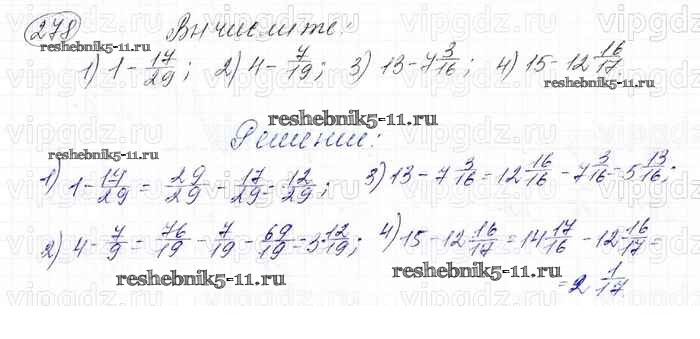 278 Вычислите:
1) 1 - 17/29; 2) 4 - 7/19; 3) 13 - 7 3/16; 4) 15 - 12 16/17.
reshebnik5-11.ru
reshebnik5-11.ru
reshebnik5-11.ru
Решение:
reshebnik5-11.ru
1) 1 - 17/29 = 29/29 - 17/29 = 12/29; 3) 13 - 7 3/16 = 12 16/16 - 7 3/16 = 5 13/16;
2) 4 - 7/9 = 76/19 - 7/19 = 69/19 = 3 12/19; 4) 15 - 12 16/17 = 14 17/16 - 12 16/17 =
= 2 1/17.
reshebnik5-11.ru
reshebnik5-11.ru
vipgdz.ru